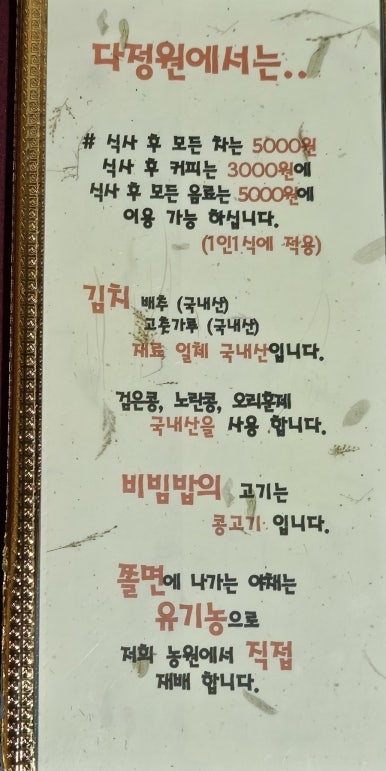 다정원에서는..
# 식사 후 모든 차는 5000원
식사 후 커피는 3000원에
식사 후 모든 음료는 5000원에
이용 가능 하십니다.
(1인1식에 적용)
김치 배추 (국내산)
고춧가루 (국내산)
재료 일체 국내산입니다.
검은콩, 노란콩, 오리훈제
국내산을 사용 합니다.
비빔밥의 고기는
콩고기 입니다.
쫄면에 나가는 야채는
유기농으로
저희 농원에서 직접
재배 합니다.